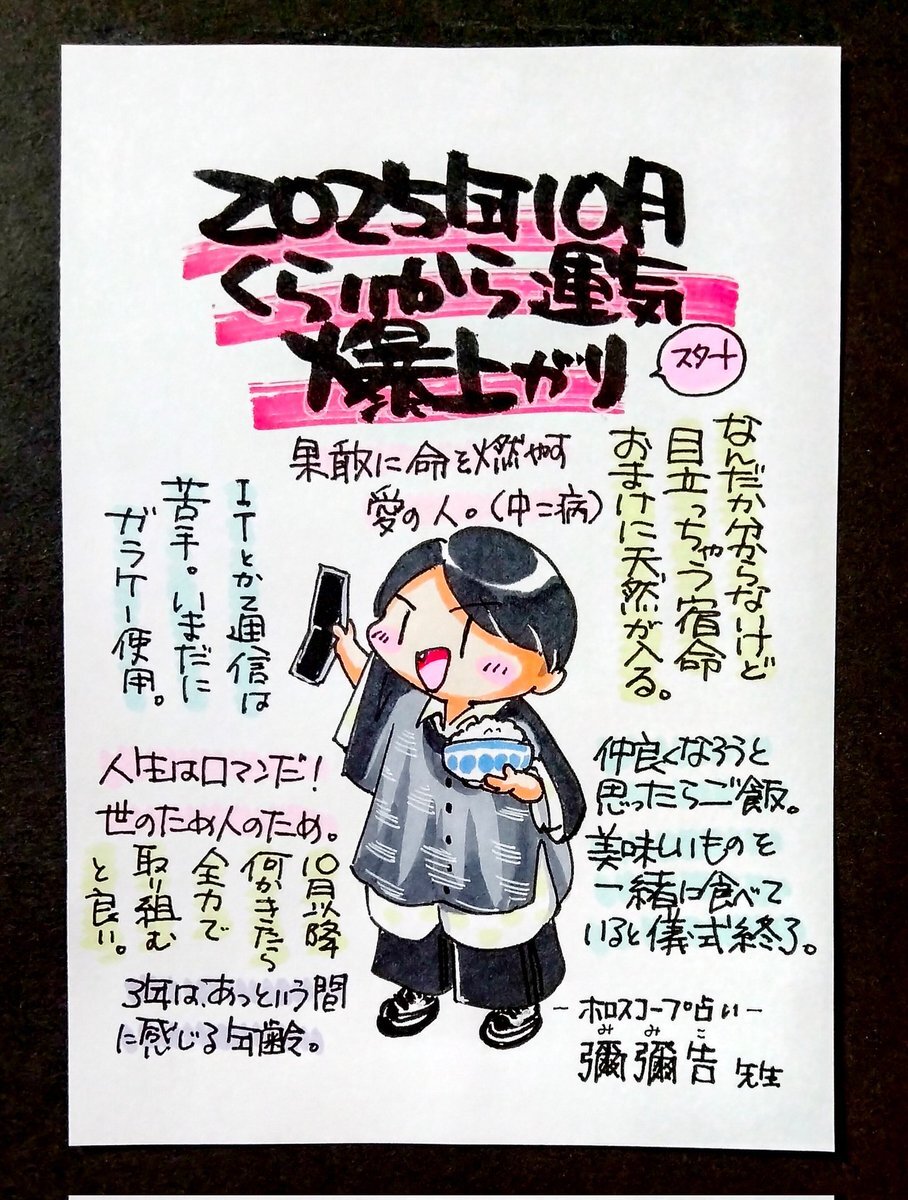 2025年10月
くらいから運気
爆上がり
スタート
果敢に命を燃やす
愛の人。(中二病)
なんだか分からないけど
目立っちゃう宿命
おまけに天然が入る。
ITとかて通信は
苦手。いまだに
ガラケー使用。
人生はロマンだ!
世のため人のため。
10月以降
何かきたら
全力で
取り組む
と良い。
3年は、あっという間
に感じる年齢。
仲良くなろうと
思ったらご飯。
美味しいものを
一緒に食べて
いると儀式終了。
-ホロスコープ占い-
みみこ
彌彌告先生